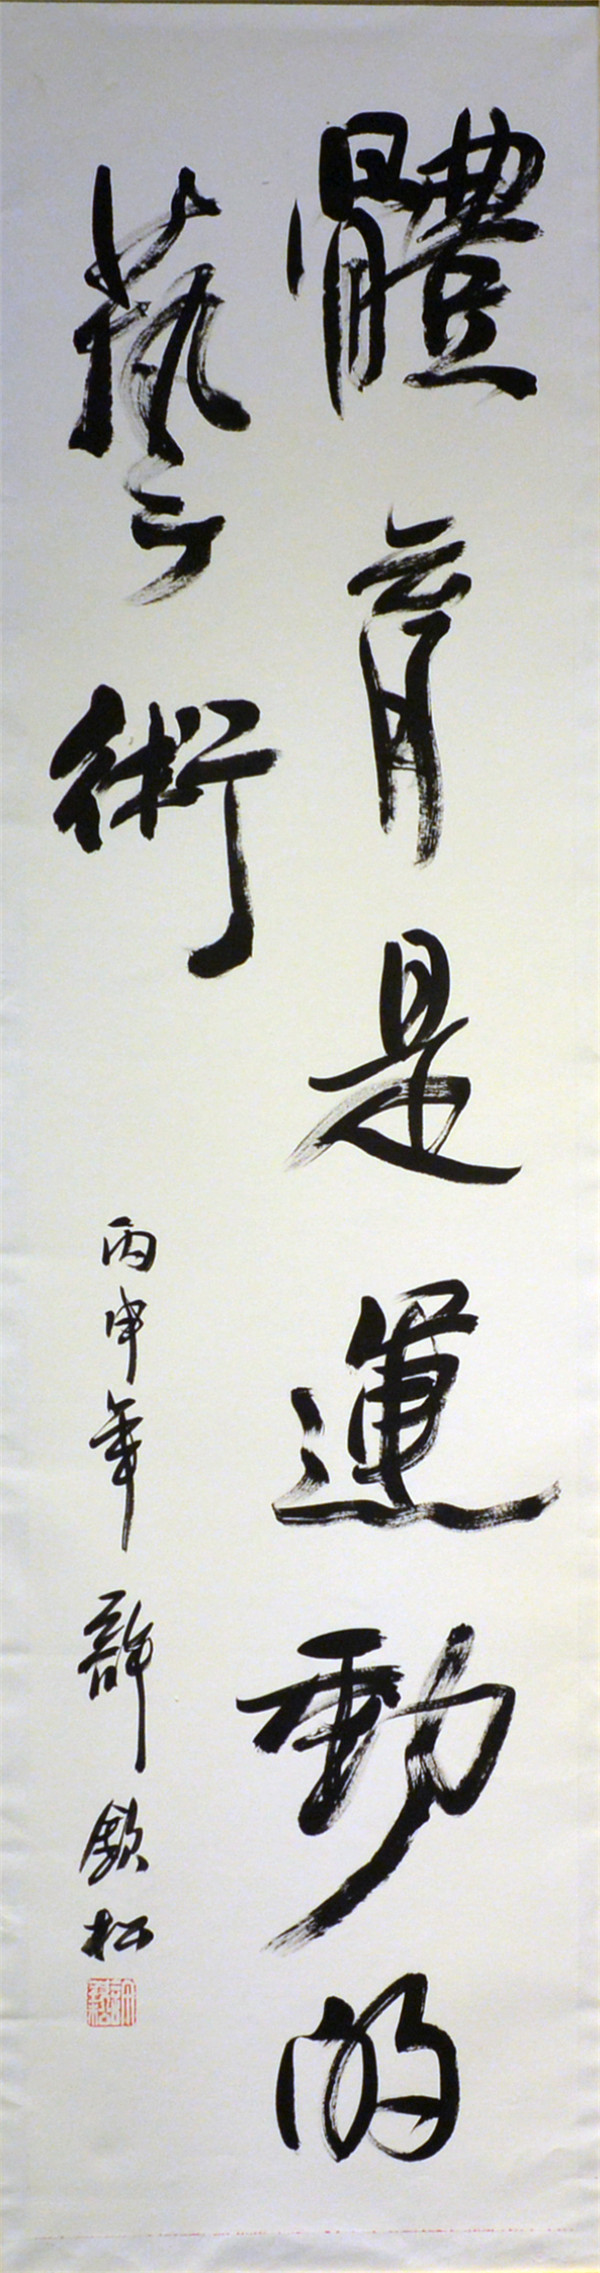 體育是運動的
藝術
丙申年許欽松